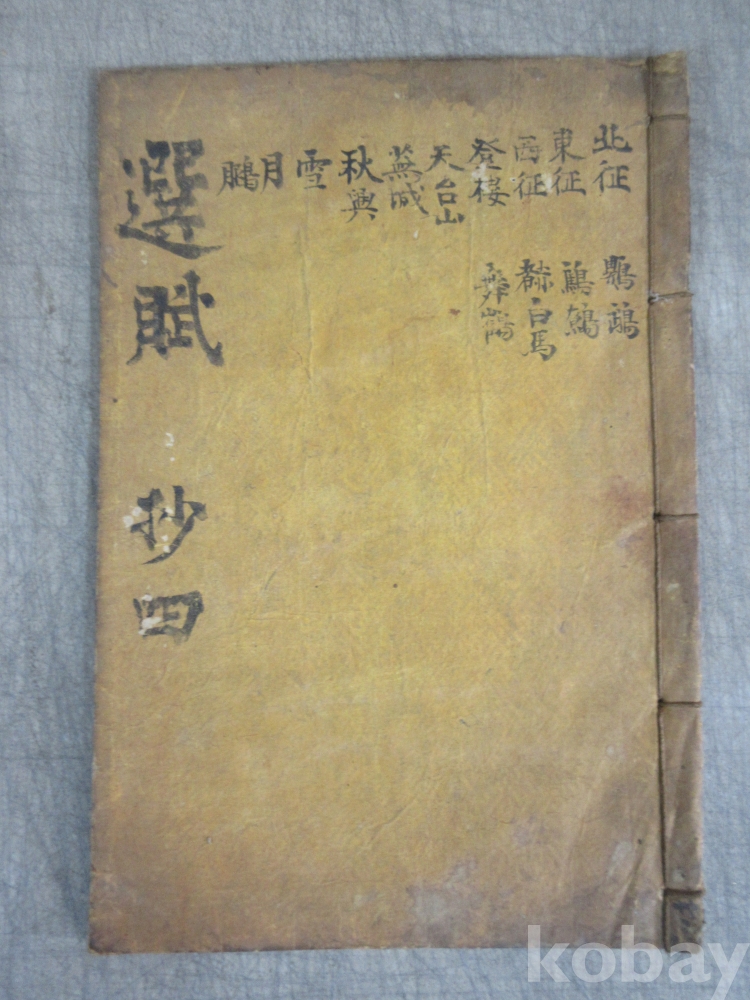 北征
東征
西征
登樓
天台山
蕪城
秋興
雪
月
鵩
鸚鵡
鷦鷯
赭白馬
舞鶴
選賦 抄四
kobay